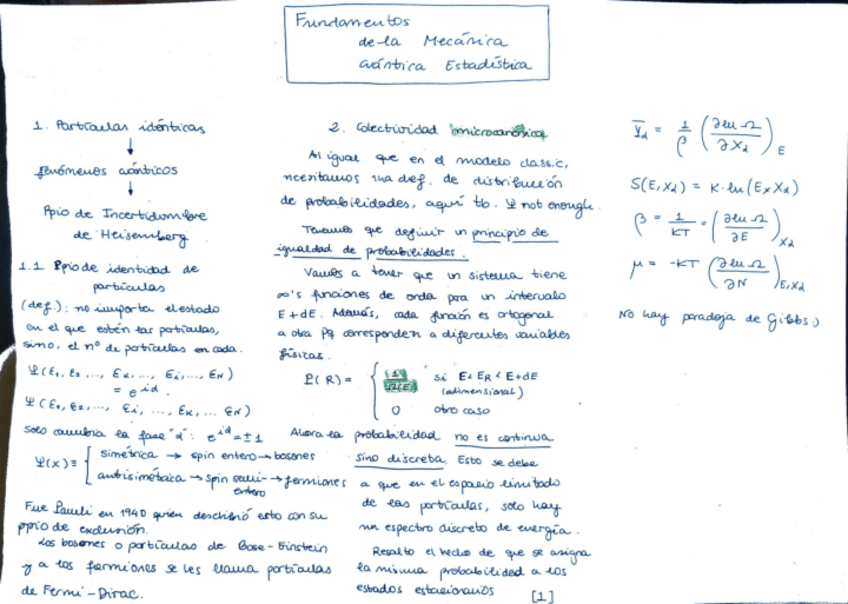 Fundamentos
de la Mecánica
cuántica Estadística
1. Partículas idénticas
↓
fenómenos cuánticos
↓
Ppio de Incertidumbre
de Heisemberg
1.1 Ppio de identidad de
partículas
(def.): no importa el estado
en el que están las partículas,
sino, el nº de partículas en cada.
Ψ(E₁, E₂ ..., Eₖ, ..., Eᵢ, ..., E_N)
= e^{iα}.
Ψ(E₁, E₂, ..., Eᵢ, ..., Eₖ, ... E_N)
Solo cambia la fase "α": e^{iα} = ±1
Ψ(x) = { simétrica → spin entero → bosones
antisimétrica → spin semi- → fermiones
entero
Fue Pauli en 1940 quien descubrió esto con su
ppio de exclusión.
Los bosones o partículas de Bose-Einstein
y a los fermiones se les llama partículas
de Fermi-Dirac.
2. Colectividad microcanónica
Al igual que en el modelo classic,
necesitamos una def. de distribución
de probabilidades, aquí tb. Ψ not enough.
Tenemos que definir un principio de
igualdad de probabilidades.
Vamos a tener que un sistema tiene
∞'s funciones de onda para un intervalo
E+dE. Además, cada función es ortogonal
a otra pq corresponden a diferentes variables
físicas.
P(R) = { 1/Ω(E) si E < E_R < E+dE
(adimensional)
0 otro caso
Ahora la probabilidad no es continua
sino discreta. Esto se debe
a que en el espacio limitado
de las partículas, solo hay
un espectro discreto de energía.
Resalto el hecho de que se asigna
la misma probabilidad a los
estados estacionarios [1]
Ȳ_α = 1/β (∂ln Ω/∂X_α)_E
S(E, X_α) = K·ln(E, X_α)
β = 1/KT = (∂ln Ω/∂E)_{X_α}
μ = -KT (∂ln Ω/∂N)_{E, X_α}
No hay paradoja de Gibbs :)